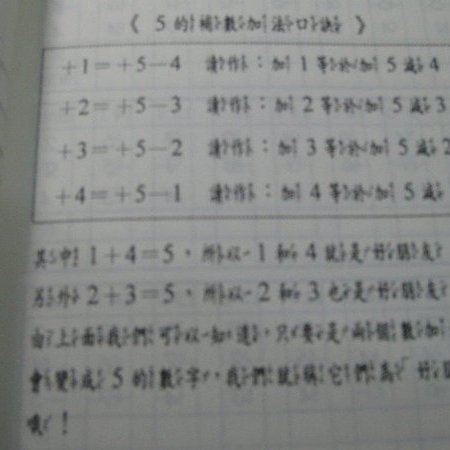 《 5 的補數加法口訣 》
+1=+5-4 讀作：加 1 等於加 5 減 4
+2=+5-3 讀作：加 2 等於加 5 減 3
+3=+5-2 讀作：加 3 等於加 5 減 2
+4=+5-1 讀作：加 4 等於加 5 減
其中 1+4=5，所以 1 和 4 就是好朋友
另外 2+3=5，所以 2 和 3 也是好朋友
由上面我們可以知道，只要是兩個數加
會變成 5 的數字，我們就稱它們為「好
哦！